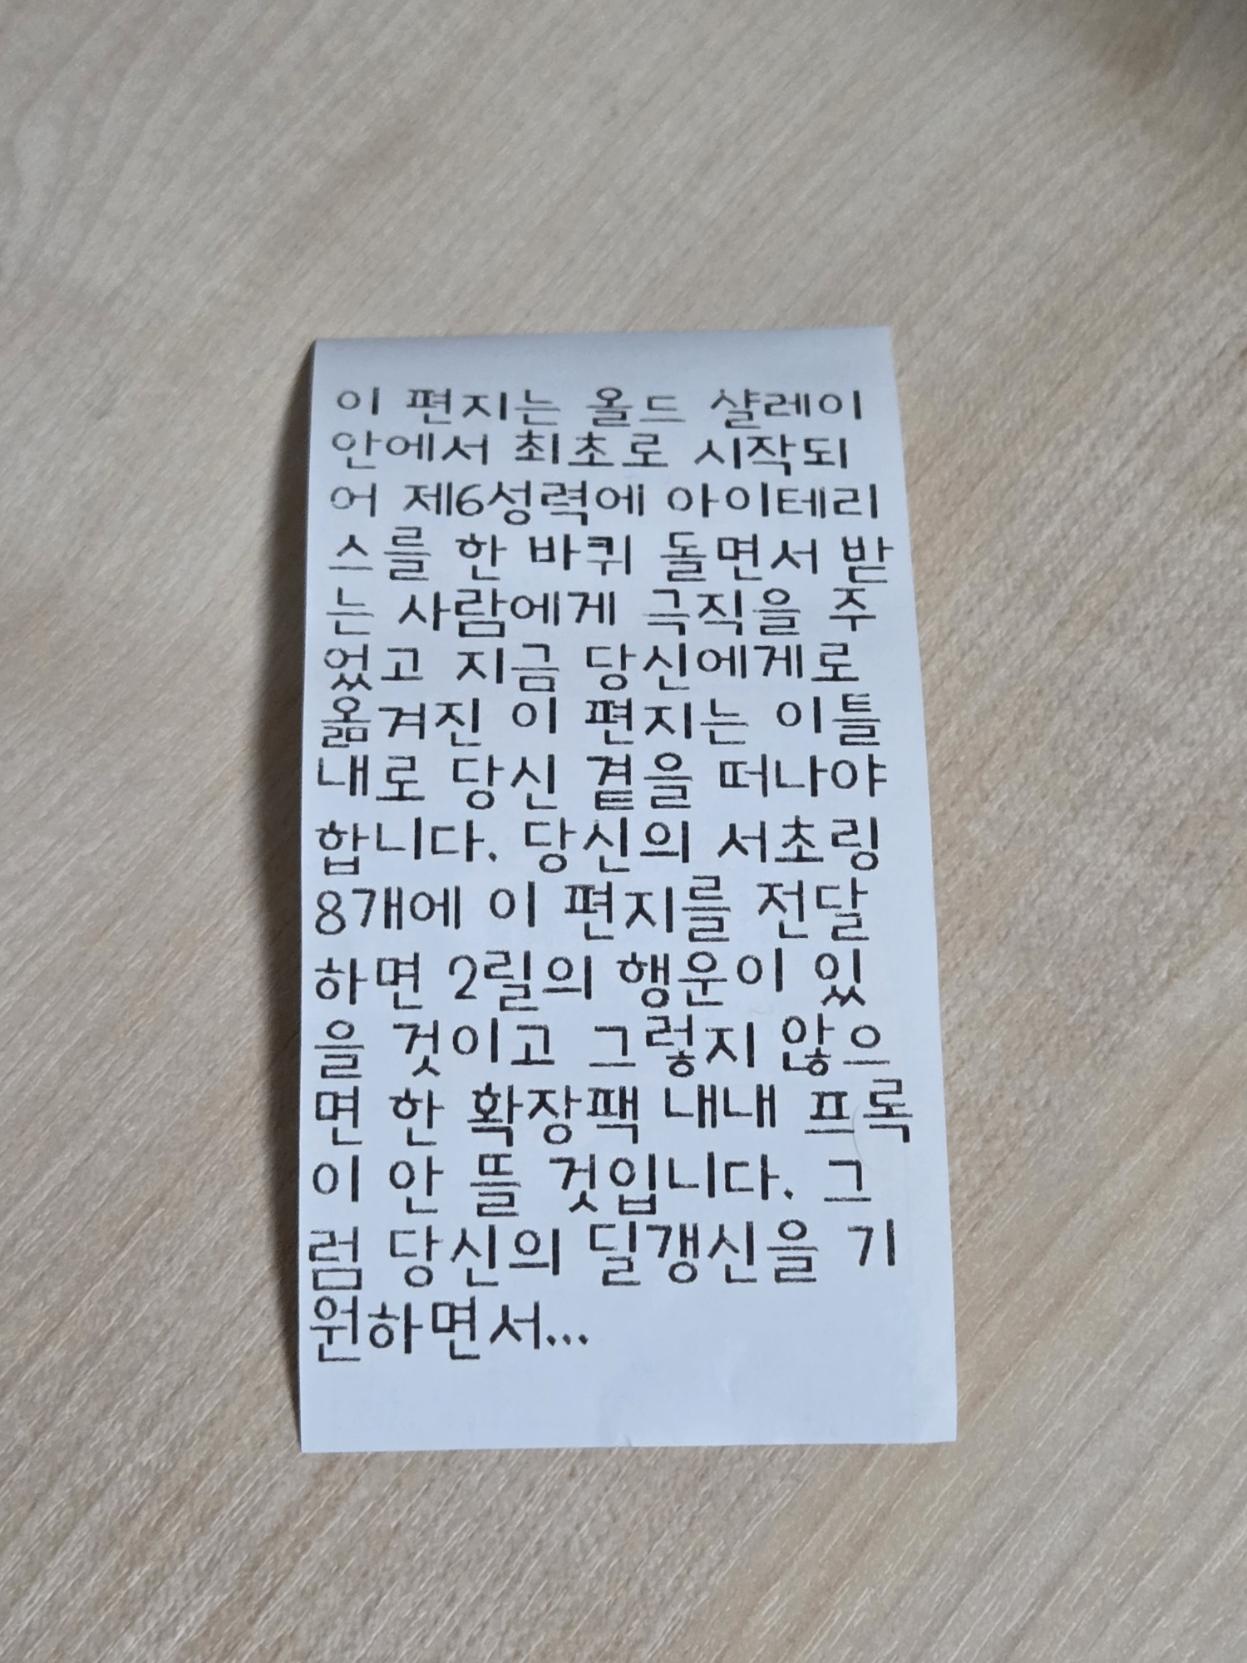 이 편지는 올드 샬레이
안에서 최초로 시작되
어 제6성력에 아이테리
스를 한 바퀴 돌면서 받
는 사람에게 극직을 주
었고 지금 당신에게로
옮겨진 이 편지는 이틀
내로 당신 곁을 떠나야
합니다. 당신의 서초링
8개에 이 편지를 전달
하면 2릴의 행운이 있
을 것이고 그렇지 않으
면 한 확장팩 내내 프록
이 안 뜰 것입니다. 그
럼 당신의 딜갱신을 기
원하면서...